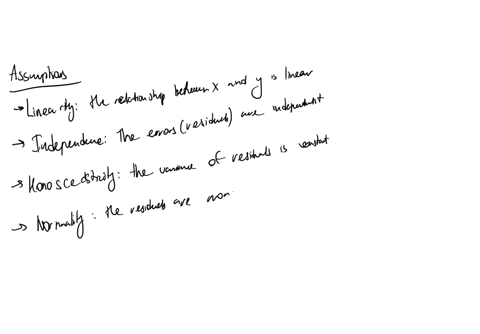 Assumptions
→ Linearity: the relationship between x and y is linear
→ Independence: The errors (residuals) are independent
→ Homoscedasticity: the variance of residuals is constant
→ Normality: the residuals are